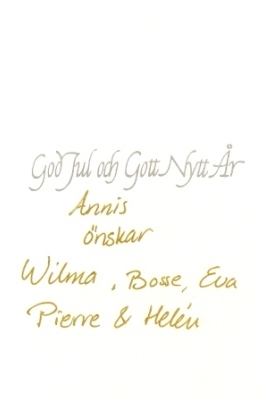 God Jul och Gott Nytt År
Annis
önskar
Wilma, Bosse, Eva
Pierre & Helén